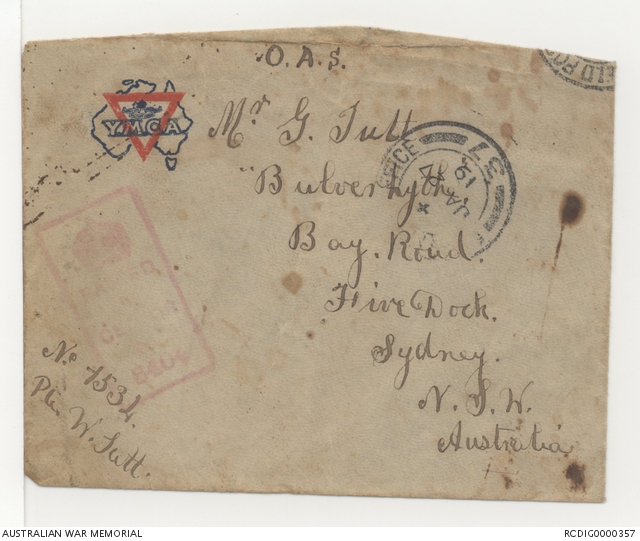 O.A.S.
YMCA
Mr G. Tutt
"Bulverhythe"
Bay. Road.
Five Dock.
Sydney.
N. S. W.
Australia
37
JA
19
FIELD PO
No 1534.
Pte. W. Tutt.
AUSTRALIAN WAR MEMORIAL
RCDIG0000357